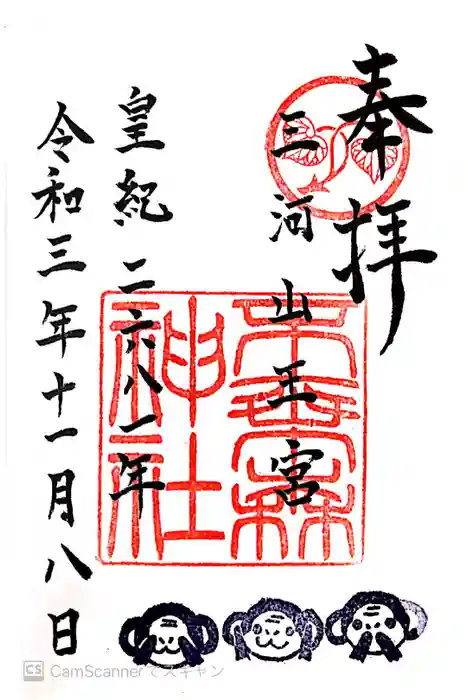 奉拝
三河山王宮
皇紀二六八一年
令和三年十一月八日
神社
CS CamScannerでスキャン